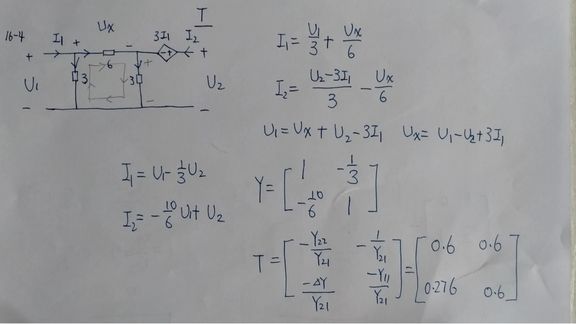 16-4 Ux T
I1 + - 3I1 I2
+ 6 - + +
U1 3 3 + U2
- - -
I1 = U1/3 + Ux/6
I2 = (U2-3I1)/3 - Ux/6
U1 = Ux + U2 - 3I1 Ux = U1 - U2 + 3I1
I1 = U1 - 1/3 U2
I2 = -10/6 U1 + U2
Y = [1 -1/3
-10/6 1]
T = [-Y22/Y21 -1/Y21
-ΔY/Y21 -Y11/Y21] = [0.6 0.6
0.276 0.6]